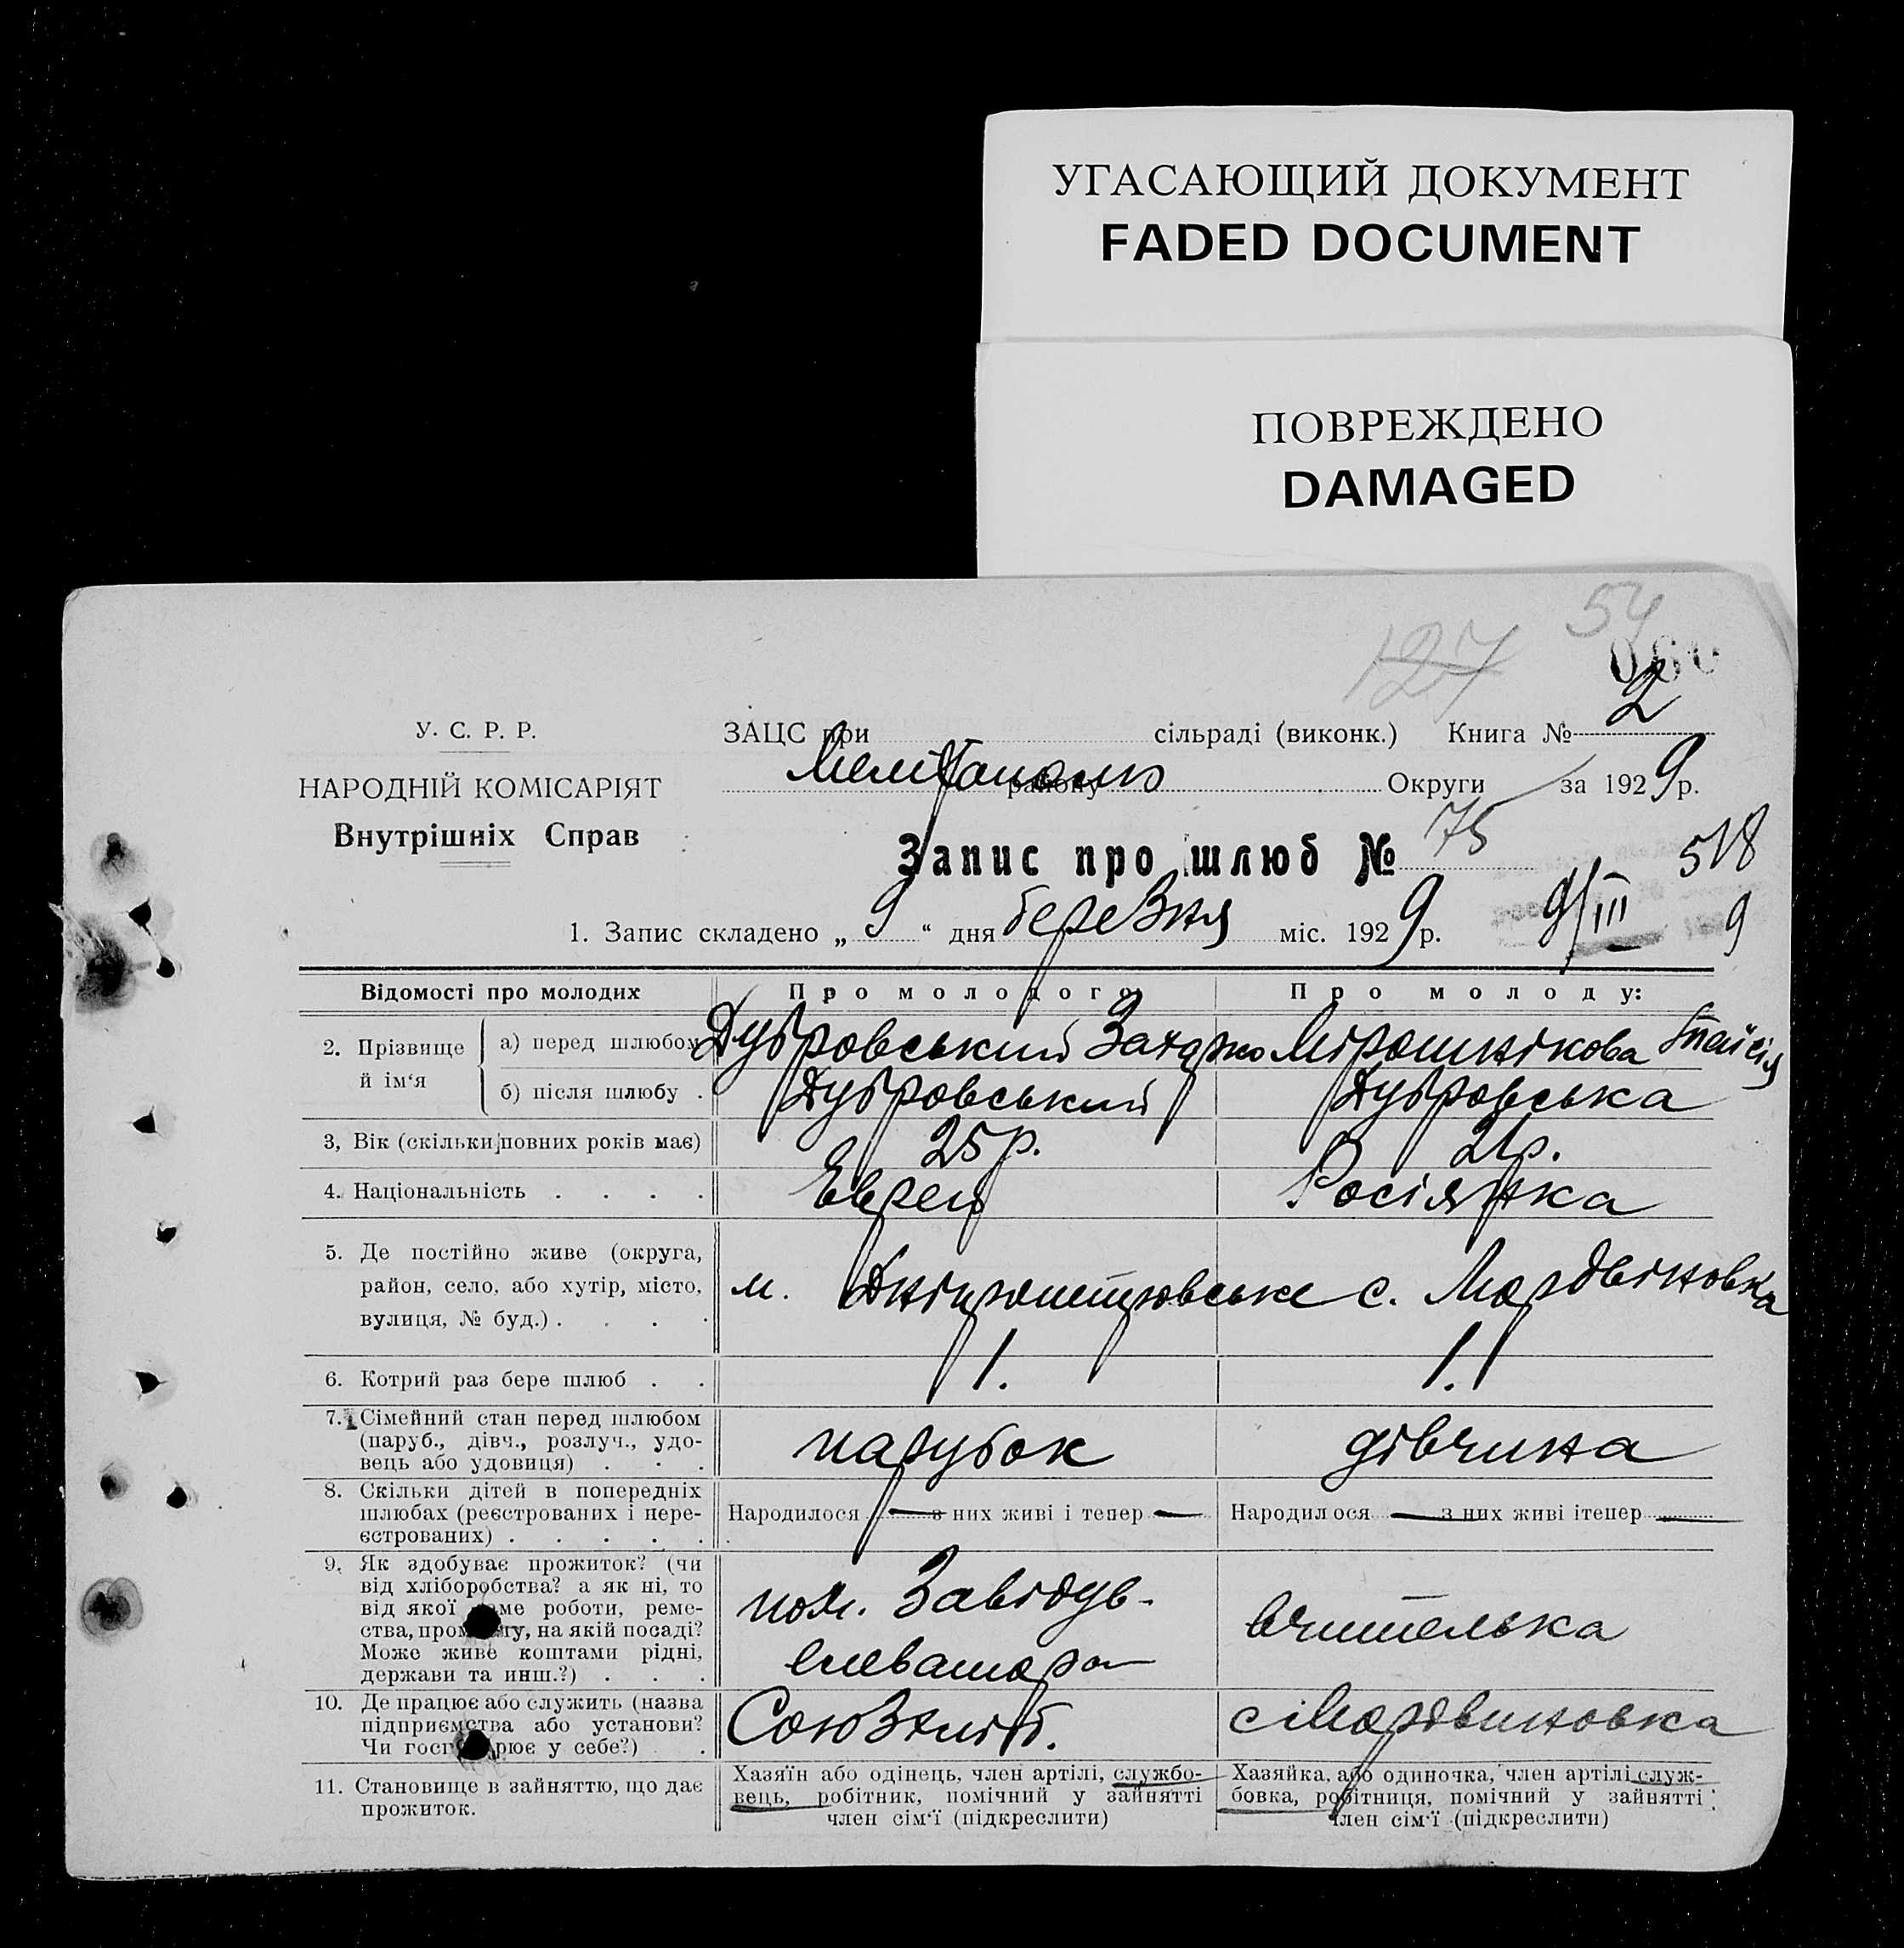 УГАСАЮЩИЙ ДОКУМЕНТ
FADED DOCUMENT
ПОВРЕЖДЕНО
DAMAGED
54
127
2
У. С. Р. Р.
НАРОДНІЙ КОМІСАРІЯТ
Внутрішніх Справ
ЗАЦС при сільраді (виконк.) Книга №
району Округи за 1929 р.
Запис про шлюб № 75
518
1. Запис складено „ 9 “ дня березня міс. 1929 р. 9/III 9
Відомості про молодих
Про молодого:
Про молоду:
2. Прізвище й ім‘я
а) перед шлюбом
Дубровський Захарко
Мірошнікова Таїсія
б) після шлюбу .
Дубровський
Дубровська
3, Вік (скільки повних років має)
25 р.
21 р.
4. Національність . . . .
Еврей
Росіянка
5. Де постійно живе (округа,
район, село, або хутір, місто,
вулиця, № буд.) . . . .
м. Дніпропетровське
с. Мордвіновка
6. Котрий раз бере шлюб . .
1.
1.
7. Сімейний стан перед шлюбом
(паруб., дівч., розлуч., удо-
вець або удовиця) . . .
парубок
дівчина
8. Скільки дітей в попередніх
шлюбах (реєстрованих і нере-
єстрованих) . . . . .
Народилося — з них живі і тепер —
Народилося — з них живі ітепер —
9. Як здобуває прожиток? (чи
від хліборобства? а як ні, то
від якої роботи, реме-
ства, на якій посаді?
Може живе коштами рідні,
держави та инш.?) . . .
пом. Завідув-
елеватора
вчителька
10. Де працює або служить (назва
підприємства або установи?
Чи у себе?) .
Союзхліб.
с Мордвиновка
11. Становище в зайняттю, що дає
прожиток.
Хазяїн або одінець, член артілі, службо-
вець, робітник, помічний у зайнятті
член сім‘ї (підкреслити)
Хазяйка, або одиночка, член артілі служ-
бовка, робітниця, помічний у зайнятті
член сім‘ї (підкреслити)